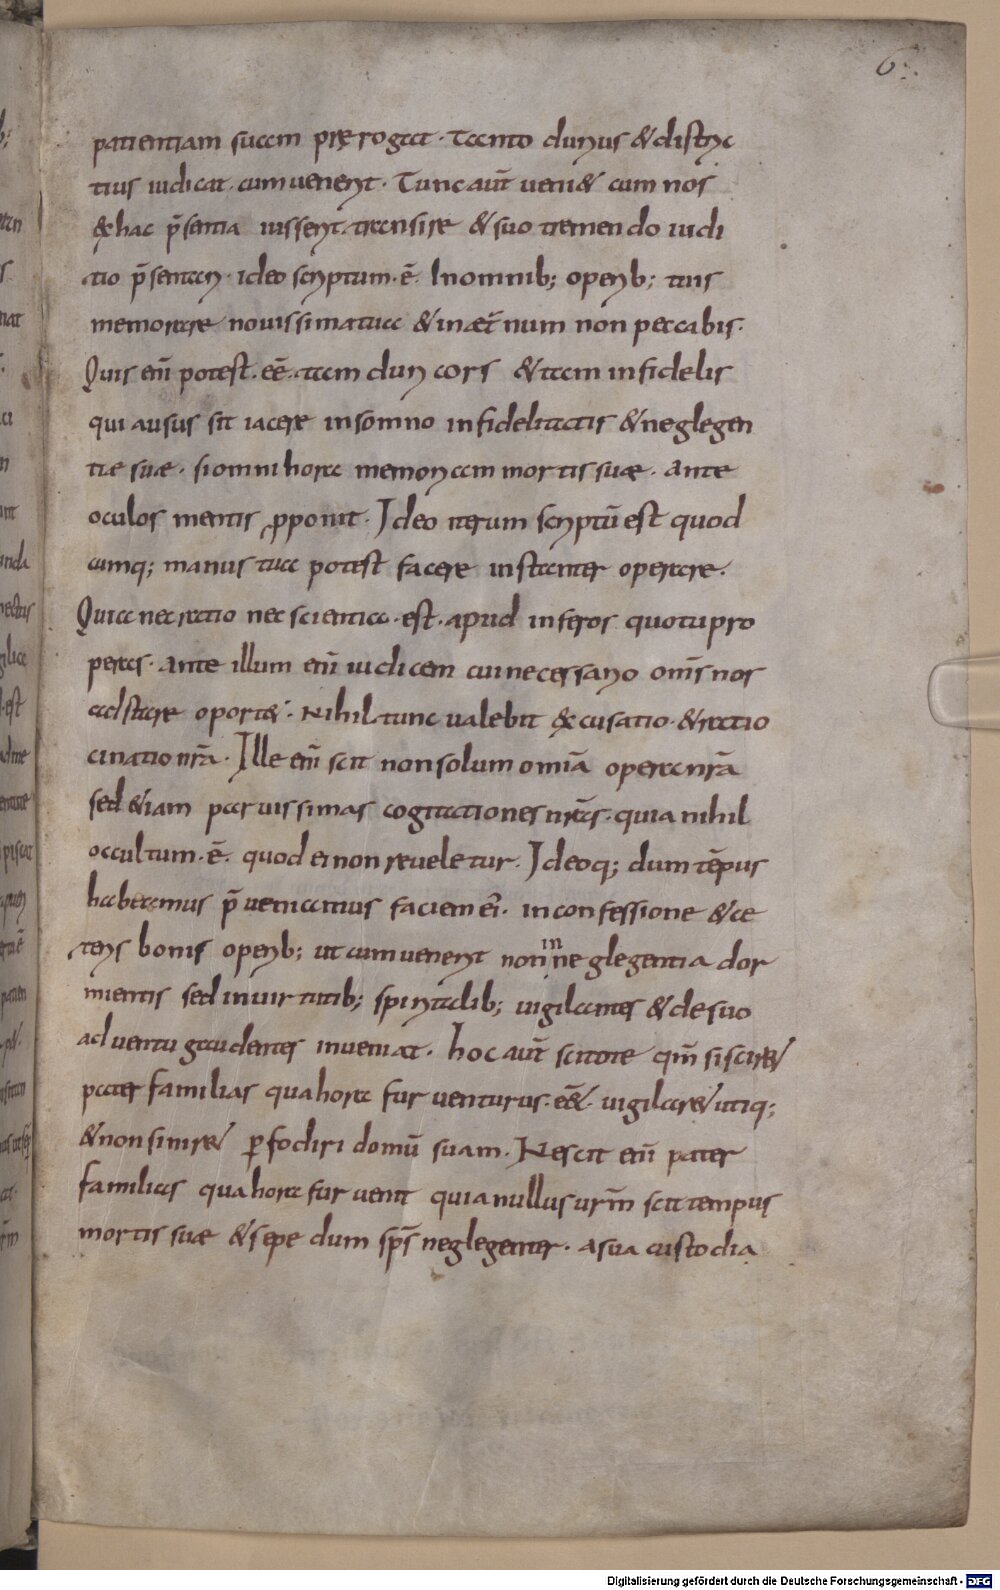 6.
patientiam suam pręrogat · tanto durius & distric
tius iudicat · cum uenerit · Tunc aut̄ ueni& cum nos
& hac p̄sentia iusserit · transire & suo tremendo iudi
tio p̄sentari · ideo scriptum · ē · In omnib; operib; tuis
memorare nouissima tua & in aet̄num non peccabis ·
Quis eni̅ potest · eē̄ · tam duri cors & tam infidelis
qui ausus sit iacere in somno infidelitatis & neglegen
tiae suae · si omni hora memoriam mortis suae · ante
oculos mentis p̱ponit · Ideo iterum scriptū est quod
cumq; manus tua potest facere instanter operare ·
Quia nec ratio nec scientia · est · apud inferos quo tu pro
peras · ante illum eni̅ iudicem cui necessario om̅s nos
adstare oport& · Nihil tunc ualebit excusatio · & ratio
cinatio nr̄a · Ille eni̅ scit non solum omīa opera nr̄a
sed & iam paruissimas cogitationes nr̄as · quia nihil
occultum · ē · quod ei non reueletur · Ideoq; dum tēpus
habeamus p̄ueniamus faciem ei̅ · in confessione & ce
teris bonis operib; ut cum uenerit non in neglegentia dor
mientis sed in uirtutib; spiritalib; uigilantes & de suo
aduentu gaudentes inueniat · hoc aut̄ scitote qm̅ si scir&
pater familias qua hora fur uenturus · ēē& · uigilar& utiq;
& non sinir& p̱fodiri domū suam · Nescit eni̅ pater
familias qua hora fur uenit quia nullus ur̄m scit tempus
mortis suae & sepe dum sp̄s neglegenter · a sua custodia
Digitalisierung gefördert durch die Deutsche Forschungsgemeinschaft - DFG